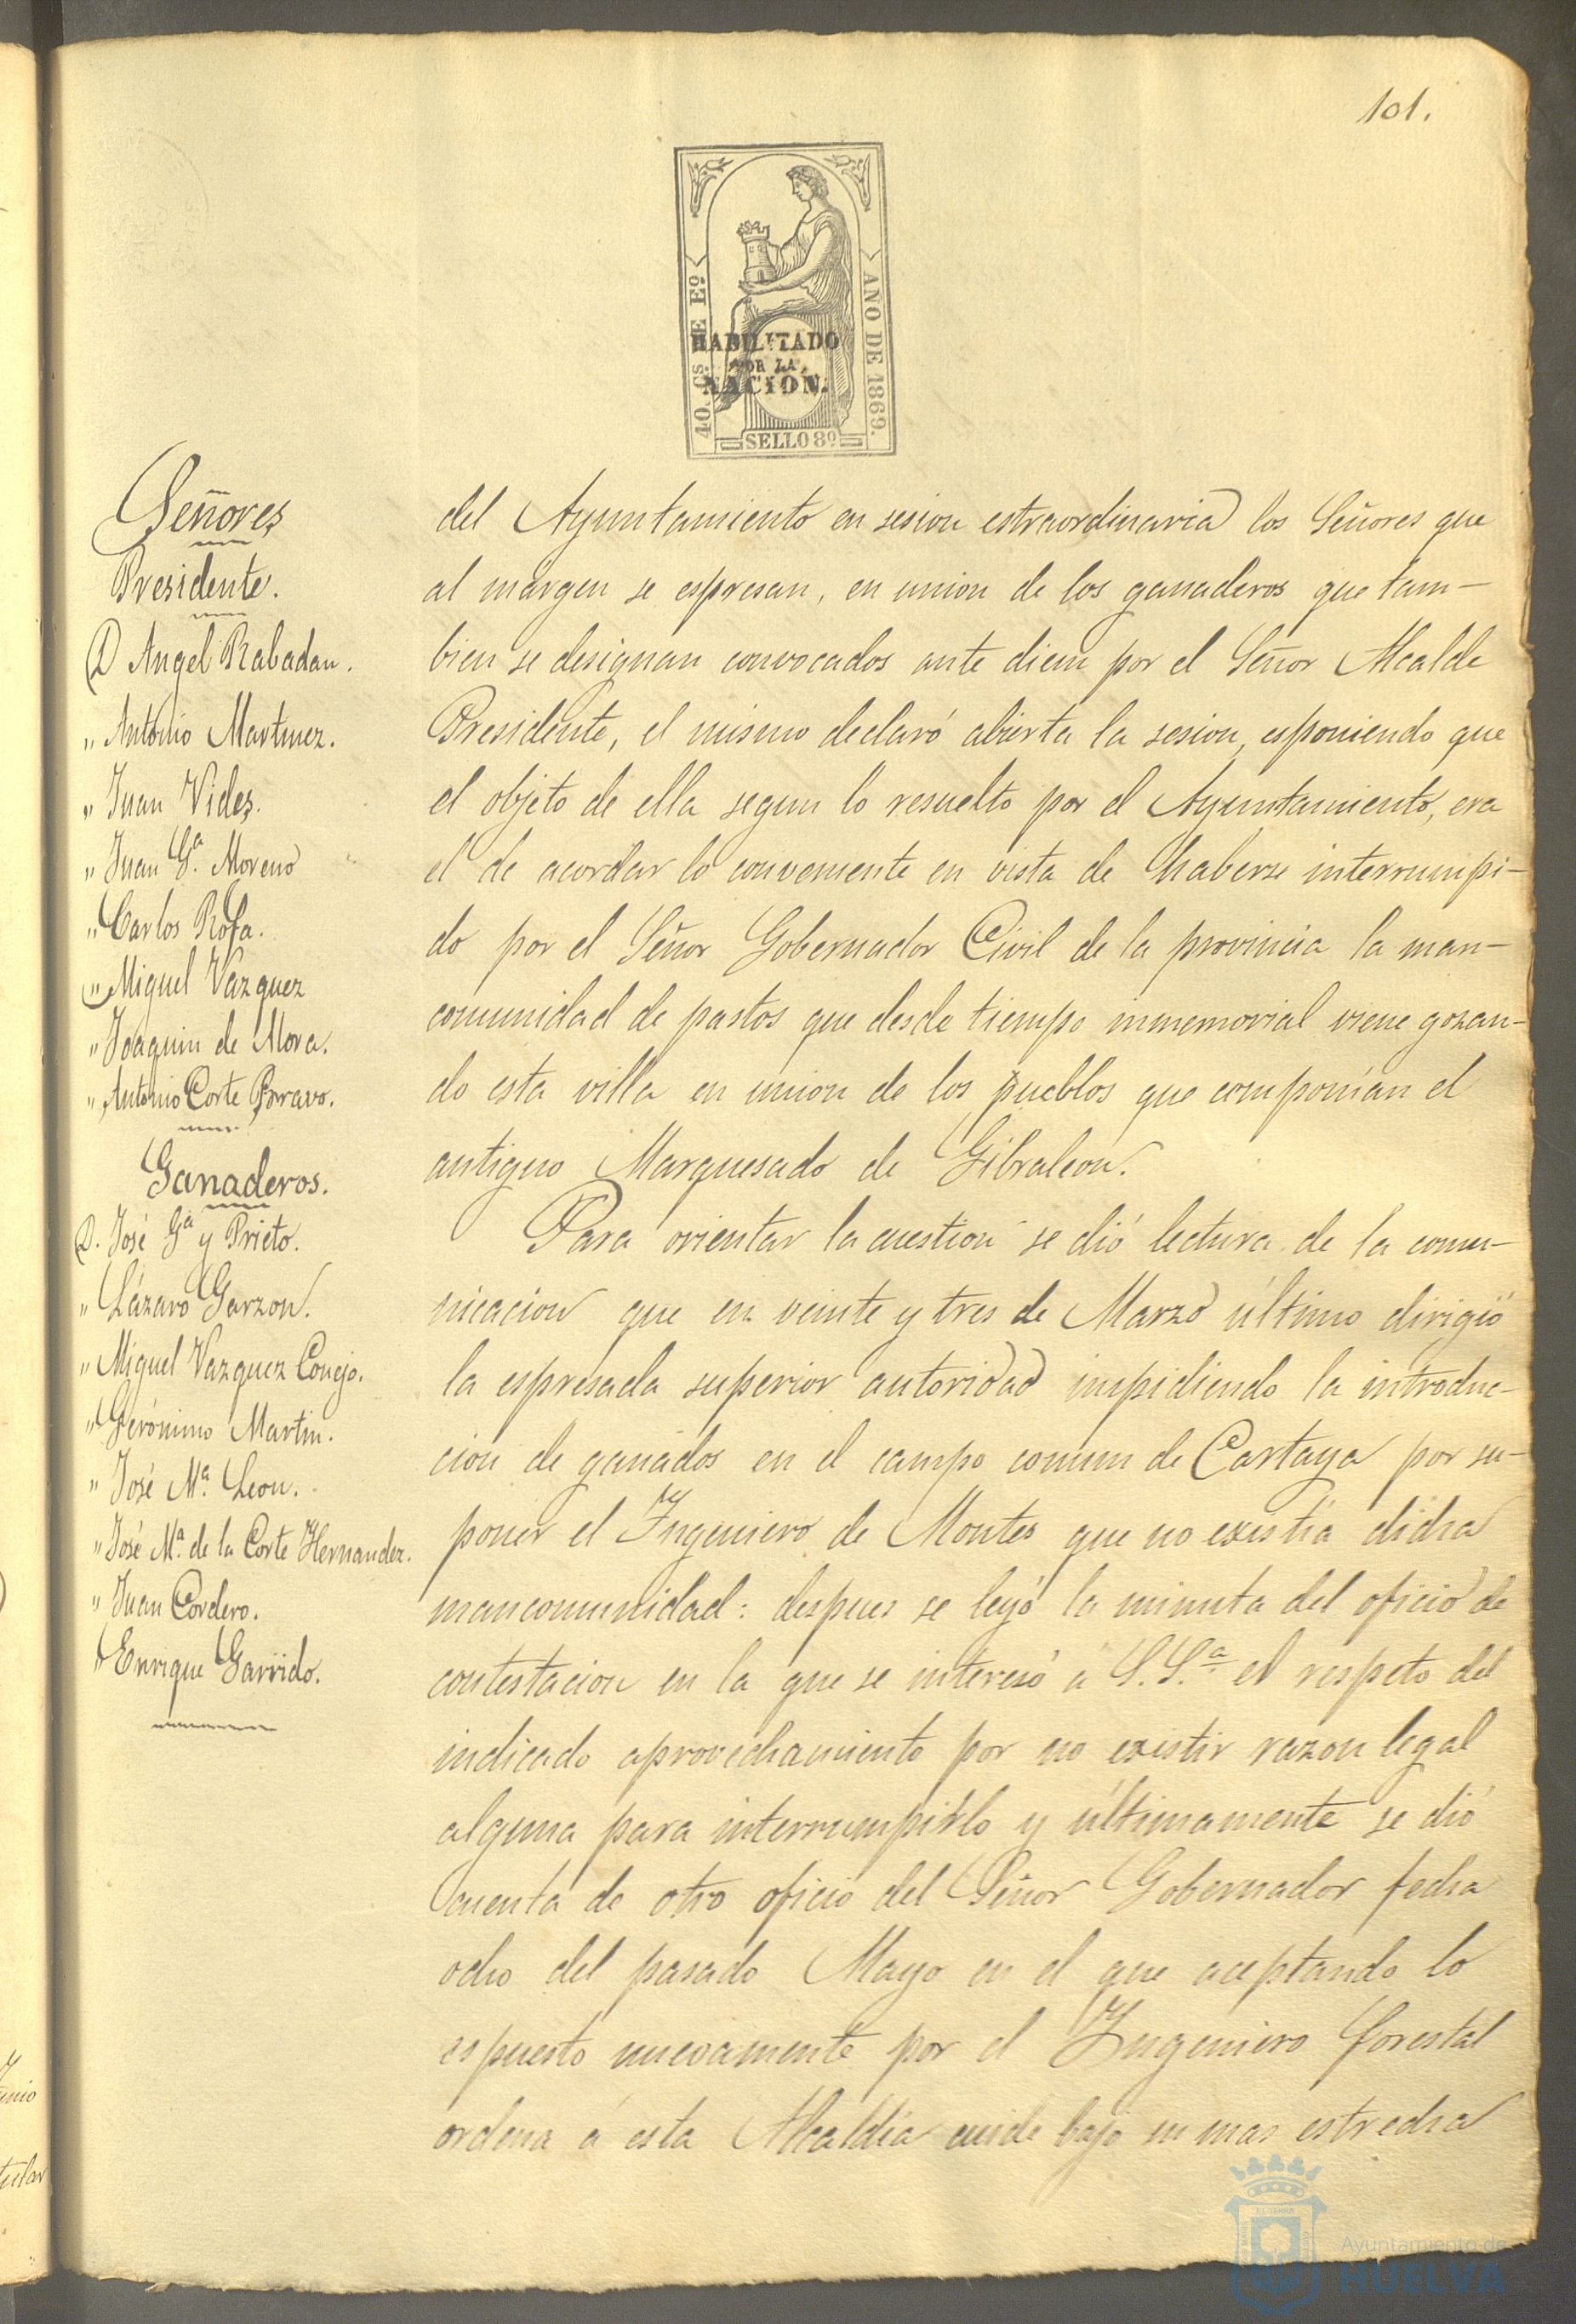 101.
40. Cs. DE Eº
AÑO DE 1869.
HABILITADO
POR LA
NACION.
SELLO 8º
Señores
Presidente.
D Angel Rabadan.
" Antonio Martinez.
" Juan Vides.
" Juan Gª. Moreno
" Carlos Rofa.
" Miguel Vazquez
" Joaquin de Mora.
" Antonio Corte Bravo.
Ganaderos.
D. José Gª y Prieto.
" Lázaro Garzon.
" Miguel Vazquez Conejo.
" Gerónimo Martin.
" José Mª. Leon.
" José Mª. de la Corte Hernandez.
" Juan Cordero.
" Enrique Garrido.
del Ayuntamiento en sesion estraordinaria los Señores que
al margen se espresan, en union de los ganaderos que tam-
bien se designan convocados ante diem por el Señor Alcalde
Presidente, el mismo declaró abierta la sesion, esponiendo que
el objeto de ella segun lo resuelto por el Ayuntamiento, era
el de acordar lo conveniente en vista de haberse interrumpi-
do por el Señor Gobernador Civil de la provincia la man-
comunidad de pastos que desde tiempo inmemorial viene gozan-
do esta villa en union de los pueblos que componian el
antiguo Marquesado de Gibraleon.
Para orientar la cuestion se dió lectura de la comu-
nicacion que en veinte y tres de Marzo último dirigió
la espresada superior autoridad impidiendo la introduc-
cion de ganados en el campo comun de Cartaya por su-
poner el Ingeniero de Montes que no existia dicha
mancomunidad: despues se leyó la minuta del oficio de
contestacion en la que se interesó á S.S.ª el respeto del
indicado aprovechamiento por no existir razon legal
alguna para interrumpirlo y últimamente se dió
cuenta de otro oficio del Señor Gobernador fecha
ocho del pasado Mayo en el que aceptando lo
espuesto nuevamente por el Ingeniero forestal
ordena á esta Alcaldía cuide bajo su mas estrecha
Ayuntamiento de
HUELVA